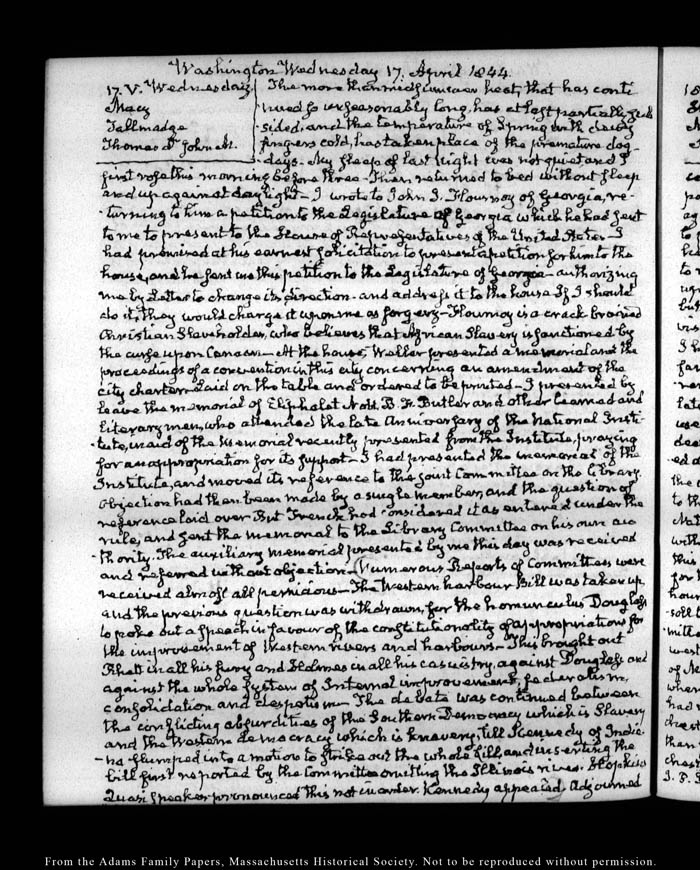 Washington Wednesday 17. April 1844.
17. V. Wednesday
Macy
Tallmadge
Thomas D. John M.
The more than midsummer heat, that has conti
nued so unseasonably long, has at last partially sub
sided, and the temperature of Spring with dewy
fingers cold, has taken place of the premature dog-
days. My sleep of last night was not quiet and I
first rose this morning before three. Then returned to bed without sleep
and up against daylight — I wrote to John J. Flournoy of Georgia, re-
turning to him a petition to the Legislature of Georgia which he had sent
to me to present to the House of Representatives of the United States — I
had promised at his earnest solicitation to present a petition for him to the
house, and he sent me this petition to the Legislature of Georgia — authorizing
me by Letter to change its direction — and address it to the house If I should
do it, they would charge it upon me as forgery — Flournoy is a crack brained
Christian Slaveholder, who believes that African Slavery is sanctioned by
the curse upon Canaan — At the house, Weller presented a memorial and the
proceedings of a convention in this city concerning an amendment of the
city charter — Laid on the table and ordered to be printed — I presented by
leave the memorial of Eliphalet Nott, B. F. Butler and other learned and
literary men, who attended the late Anniversary of the National Insti-
tute, in aid of the Memorial recently presented from the Institute, praying
for an appropriation for its support — I had presented the memorial of the
Institute, and moved its reference to the joint Committee on the Library.
Objection had then been made by a single member, and the question of
reference laid over But French had considered it as entered under the
rule, and sent the memorial to the Library Committee on his own au
thority. The auxiliary memorial presented by me this day was received
and referred without objection — Numerous Reports of Committees were
received almost all pernicious — The Western harbour Bill was taken up
and the previous question was withdrawn, for the homunculus Douglass
to poke out a speech in favour of the constitutionality of appropriations for
the improvement of Western rivers and harbours — This brought out
Rhett in all his fury and Holmes in all his casuistry, against Douglass and
against the whole system of Internal improvement, federalism,
consolidation and despotism — The debate was continued between
the conflicting absurdities of the Southern Democracy which is Slavery
and the Western democracy which is knavery, till Kennedy of India-
na slumped into a motion to strike out the whole bill, and inserting the
bill first reported by the Committee omitting the Illinois river. Hopkins
Quasi Speaker pronounced this not in order. Kennedy appealed, Adjourned
From the Adams Family Papers, Massachusetts Historical Society. Not to be reproduced without permission.